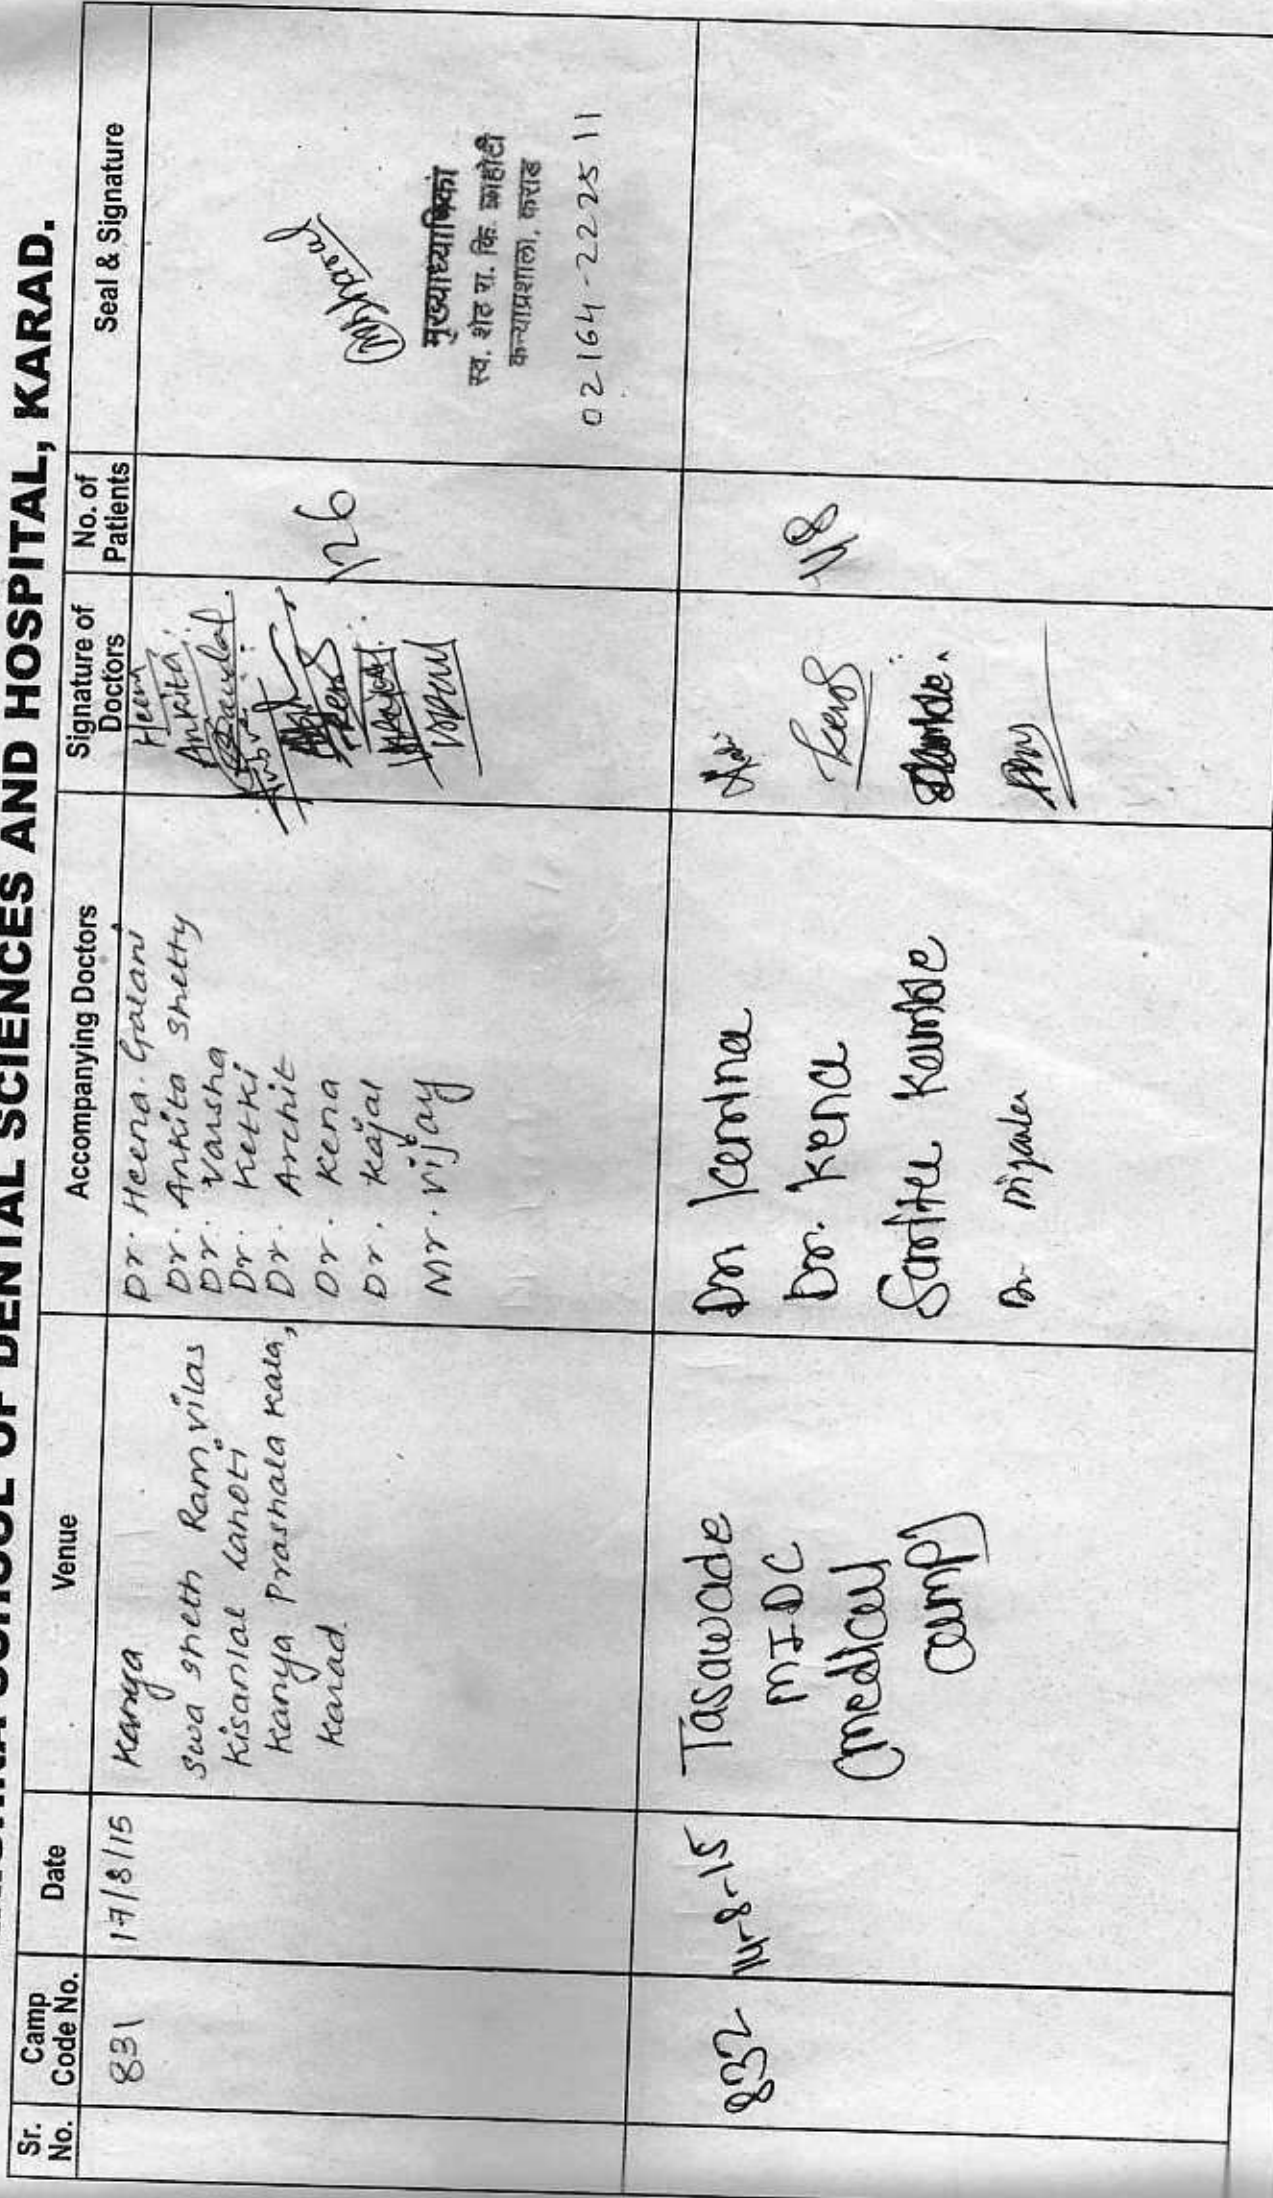 SCHOOL OF DENTAL SCIENCES AND HOSPITAL, KARAD.
Sr. No. Camp Code No. Date Venue Accompanying Doctors Signature of Doctors No. of Patients Seal & Signature
831 17/8/15
Kanya
Swa Sheth Ramvilas
Kisanlal Lahoti
Kanya Prashala Kala,
Karad.
Dr. Heena. Galani
Dr. Ankita Shetty
Dr. Varsha
Dr. Ketki
Dr. Archit
Dr. Kena
Dr. Kajal
Mr. Vijay
Heena
Ankita
126
मुख्याध्यापिका
स्व. शेठ रा. कि. लाहोटी
कन्याप्रशाला, कराड
02164-222511
832 14-8-15
Tasawade
MIDC
(medical
camp)
Dr.
Dr. Kena
Kamble
Dr.
118